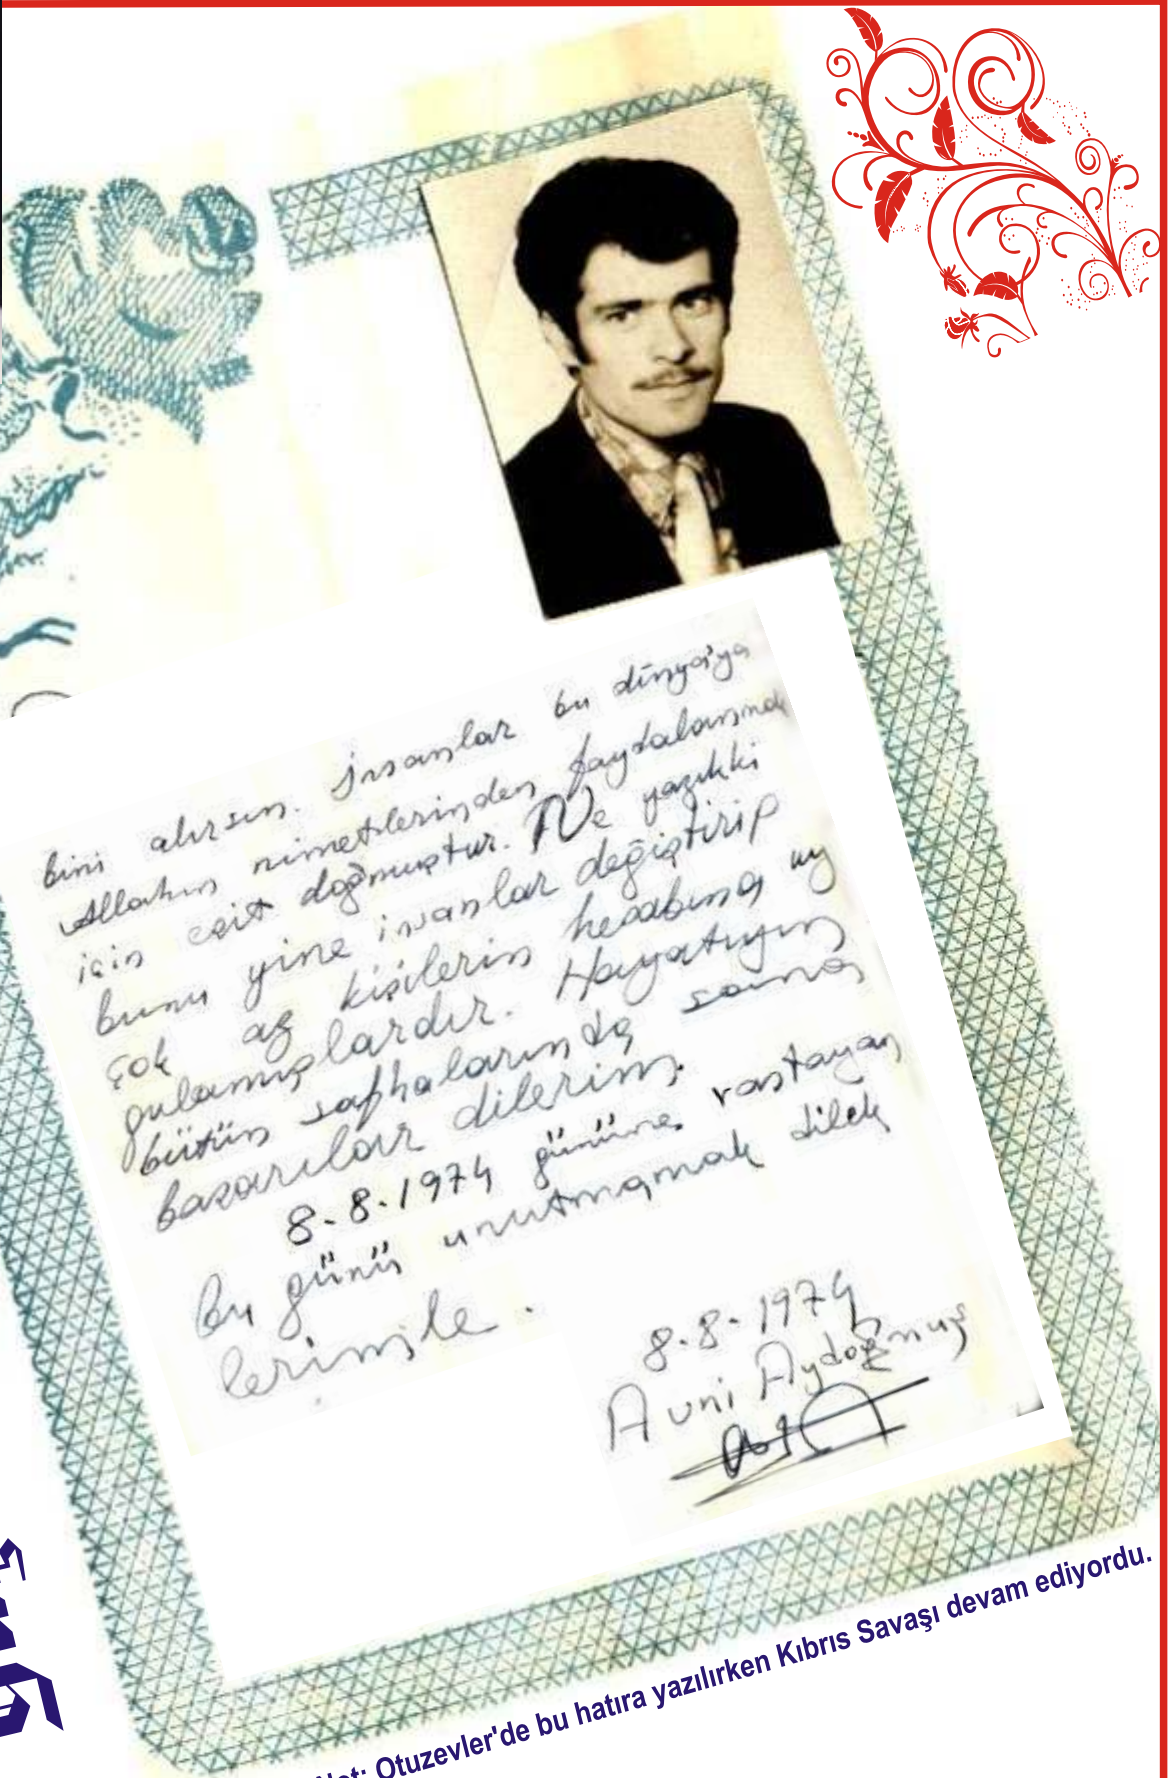 bini alırsın. İnsanlar bu dünya'ya
Allahın nimetlerinden faydalanmak
için eşit doğmuştur. Ne yazıkki
bunu yine insanlar değiştirip
çok az kişilerin hesabına uy
gulamışlardır. Hayatıyın
bütün safhalarında sana
başarılar dilerim.
8.8.1974 gününe rastayan
Bu günü unutmamak dilek
lerimle.
8.8.1974
Avni Aydoğmuş
Not: Otuzevler'de bu hatıra yazılırken Kıbrıs Savaşı devam ediyordu.